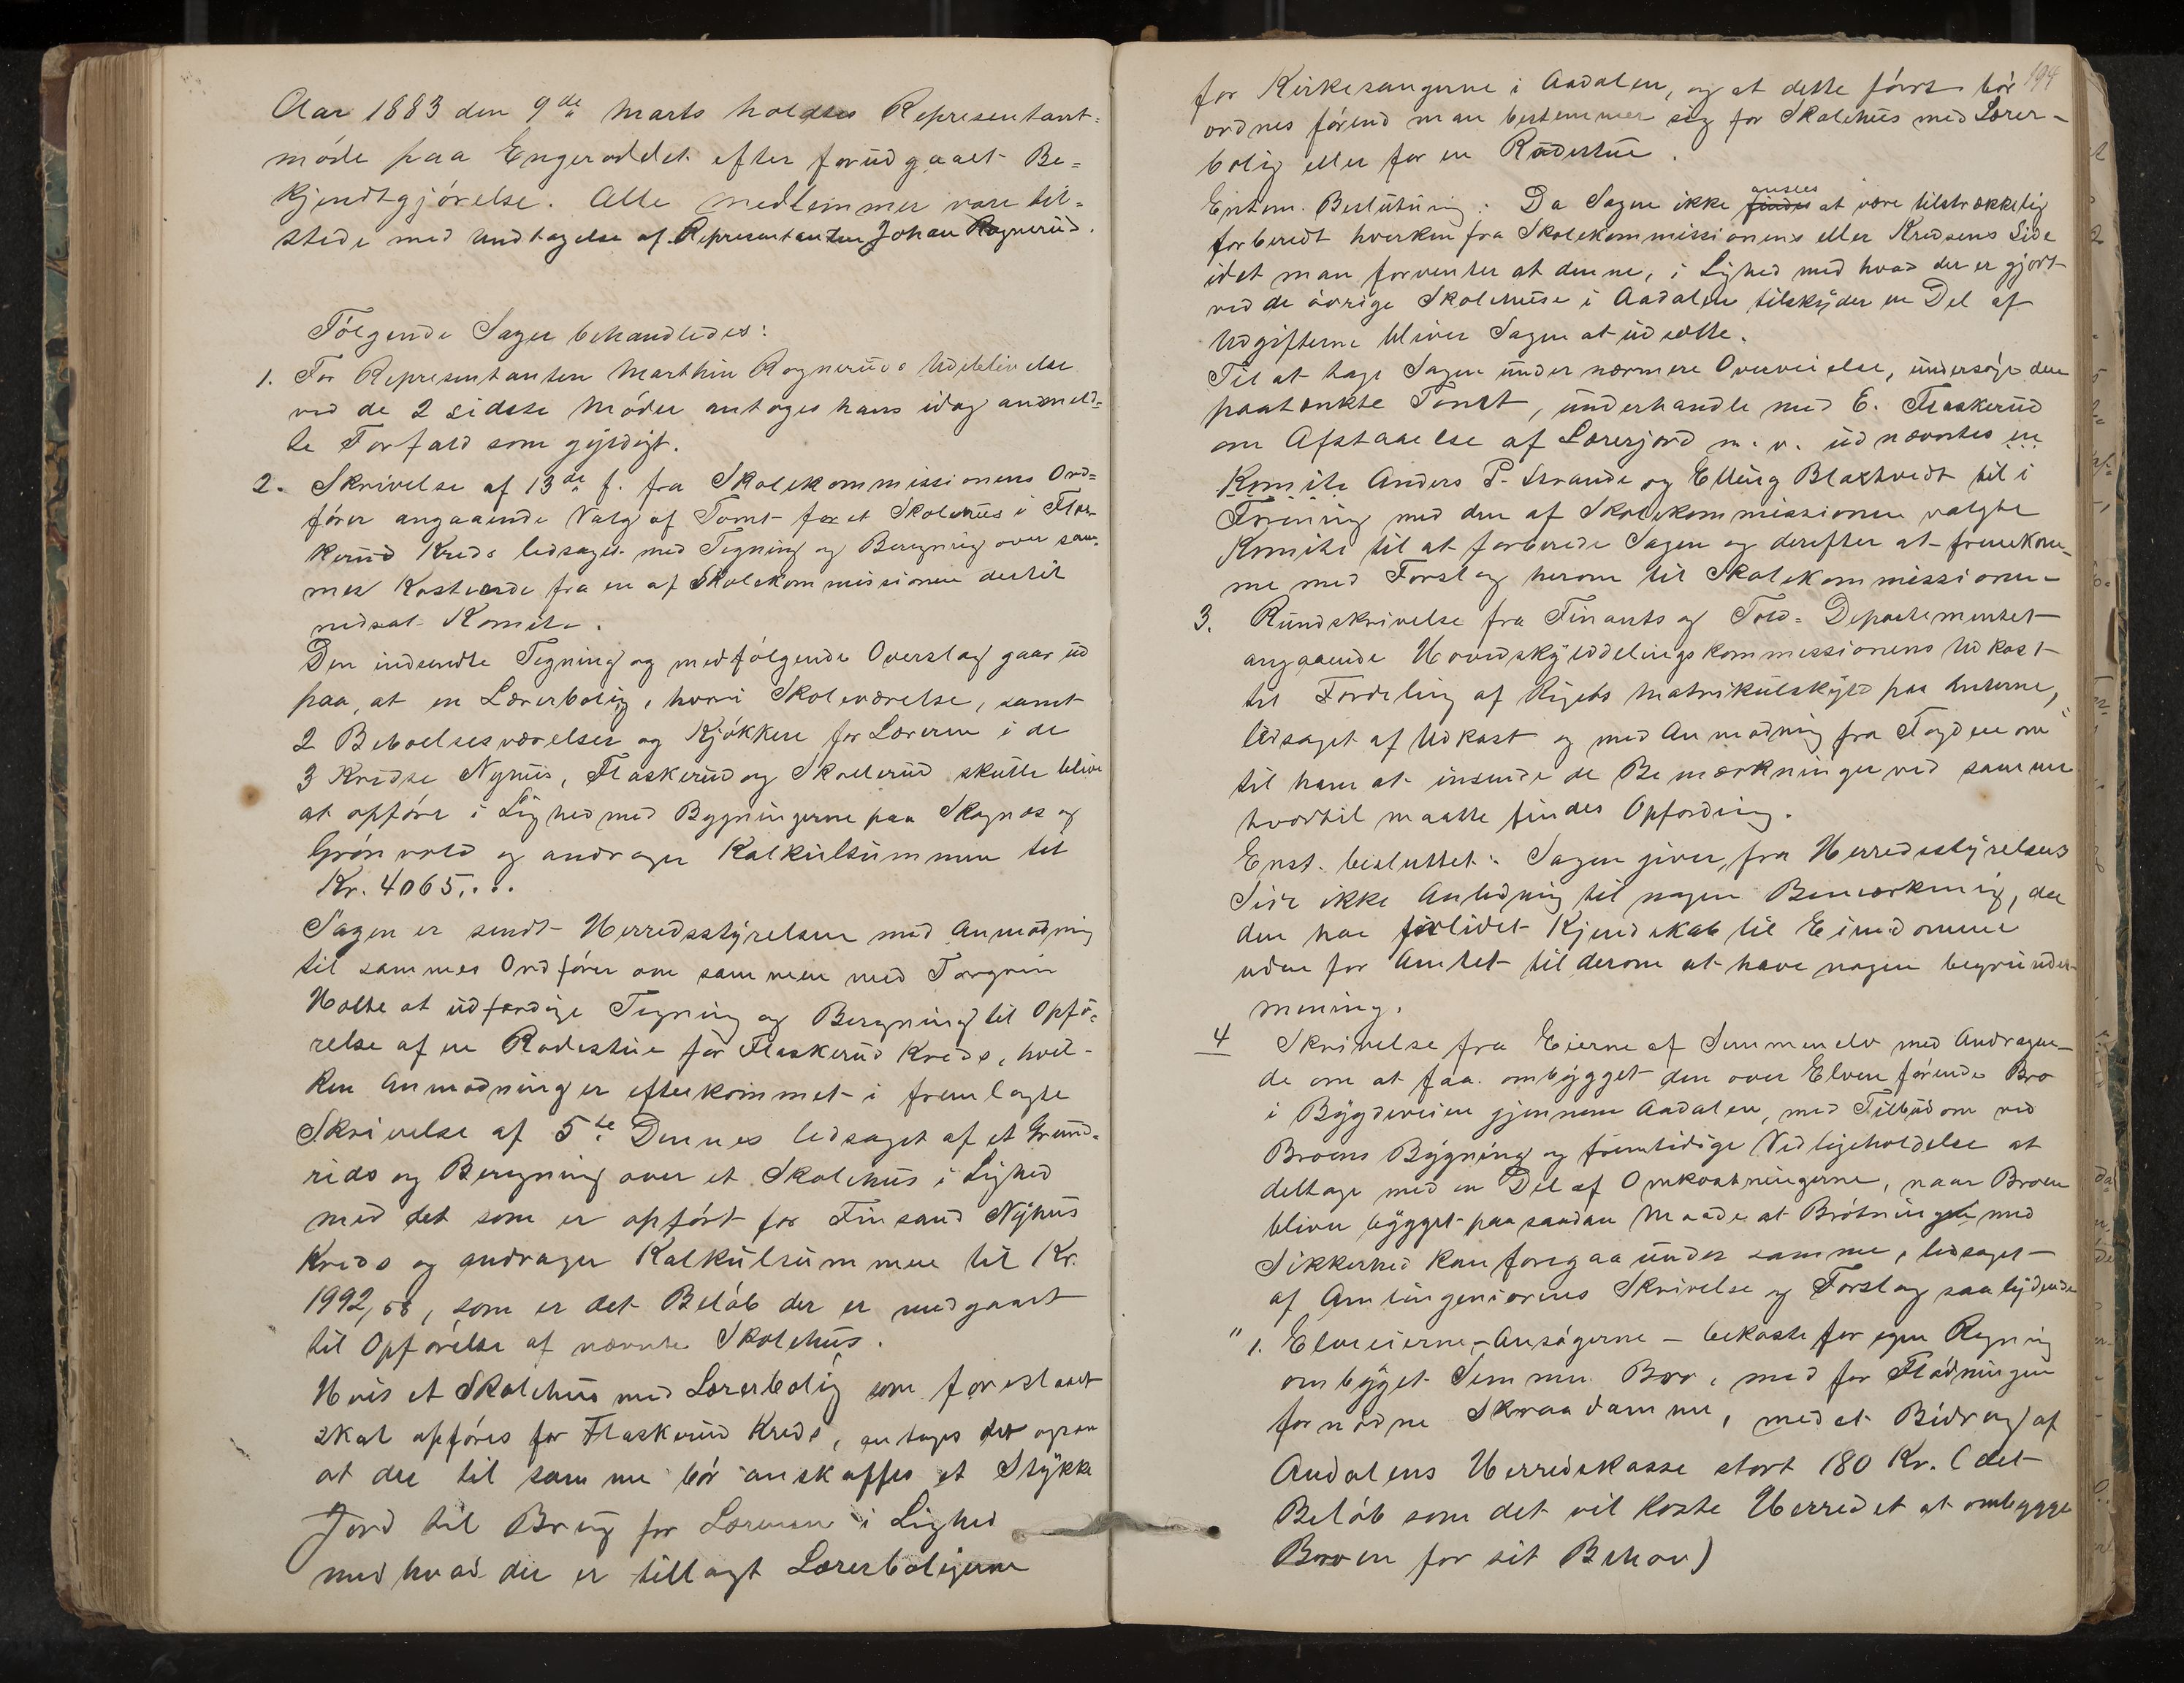 Aar 1883 den 9de Marts holdtes Representant=
møde paa Engeroddet efter forudgaaet Be=
kjendtgjørelse. Alle medlemmer vare til=
stede med Undtagelse af Representanten Johan Rognerud.
Følgende Sager behandledes:
1. For Representanten Marthin Rogneruds Udeblivelse
ved de 2 sidste Møder antoges hans idag anmeld=
te Forfald som gyldigt.
2. Skrivelse af 13de f. fra Skolekommissionens Ord=
fører angaaende Valg af Tomt for et Skolehus i Flas-
kerud Kreds ledsaget med Tegning og Beregning over sam-
mes Kostende fra en af Skolekommissionen dertil
nedsat Komite.
Den indsendte Tegning og medfølgende Overslag gaar ud
paa, at en Lærerbolig, hvori Skoleværelse, samt
2 Beboelsesværelser og Kjøkken for Læreren i de
3 Kredse Nyhus, Flaskerud og Skollerud skulle blive
at opføre i Lighed med Bygningerne paa Skagnæs og
Grønvold og andrager Kalkulsummen til
Kr. 4065...
Sagen er sendt Herredsstyrelsen med Anmodning
til sammes Ordfører om sammen med Torgrim
Holte at udfærdige Tegning og Beregning til Opfø-
relse af en Rodestue for Flaskerud Kreds, hvil-
ken Anmodning er efterkommet i fremlagte
Skrivelse af 5te Dennes ledsaget af et Grund-
rids og Beregning over et Skolehus i Lighed
med det som er opført for Finsand Nyhus
Kreds og andrager Kalkulsummen til Kr.
1992,58, som er det Beløb der er medgaaet
til Opførelse af nævnte Skolehus.
Hvis et Skolehus med Lærerbolig som foreslaaet
skal opføres for Flaskerud Kreds, antages det ogsaa
at der til samme bør anskaffes et Stykke
Jord til Brug for Læreren i Lighed
med hvad der er tillagt Lærerboligerne
194
for Kirkesangerne i Aadalen, og at dette først bør
ordnes førend man bestemmer sig for Skolehus med Lærer-
bolig eller for en Rodestue.
Enstem. Beslutning: Da Sagen ikke findes ansees at være tilstrækkelig
forberedt hverken fra Skolekommissionens eller Kredsens Side
idet man forventer at denne, i Lighed med hvad der er gjort
ved de øvrige Skolehuse i Aadalen tilskyder en Del af
Udgifterne bliver Sagen at udsætte.
Til at tage Sagen under nærmere Overveielse, undersøge den
paatænkte Tomt, underhandle med E. Flaskerud
om Afstaaelse af Lærerjord m. v. udnævntes en
Komite Anders P. Strande og Elling Blakstvedt til i
Forening med den af Skolekommissionen valgte
Komite til at forberede Sagen og derefter at fremkom-
me med Forslag herom til Skolekommissionen-
3. Rundskrivelse fra Finants og Told= Departementet
angaaende Hovedskylddelingskommissionens Udkast
til Fordeling af Rigets Matrikulskyld paa Amterne,
ledsaget af Udkast og med Anmodning fra Fogden om
til ham at insende de Bemærkninger ved samme
hvortil maatte findes Opfordring.
Enst. besluttet: Sagen giver fra Herredsstyrelsens
Side ikke Anledning til nogen Bemærkning, da
den har forlidet Kjendskab til Eiendomme
uden for Amtet til derom at have nogen begrundet
mening.
4 Skrivelse fra Eierne af Simmenelv med Andragen-
de om at faa ombygget den over Elven førende Bro
i Bygdeveien gjennem Aadalen, med Tilbud om ved
Broens Bygning og fremtidige Vedligeholdelse at
deltage med en Del af Omkostningerne, naar Broen
bliver bygget paa saadan Maade at Brøtningen med
Sikkerhed kan foregaa under samme, ledsaget
af Amtingeniørens Skrivelse og Forslag saalydende
" 1. Elveeierne - Ansøgerne - bekoste for egen Regning
ombygget Simmen Bro, med for Flødningen
fornødne Skraadamme, mod et Bidrag af
Aadalens Herredskasse stort 180 Kr. (det
Beløb som det vil koste Herredet at ombygge
Broen for sit Behov)